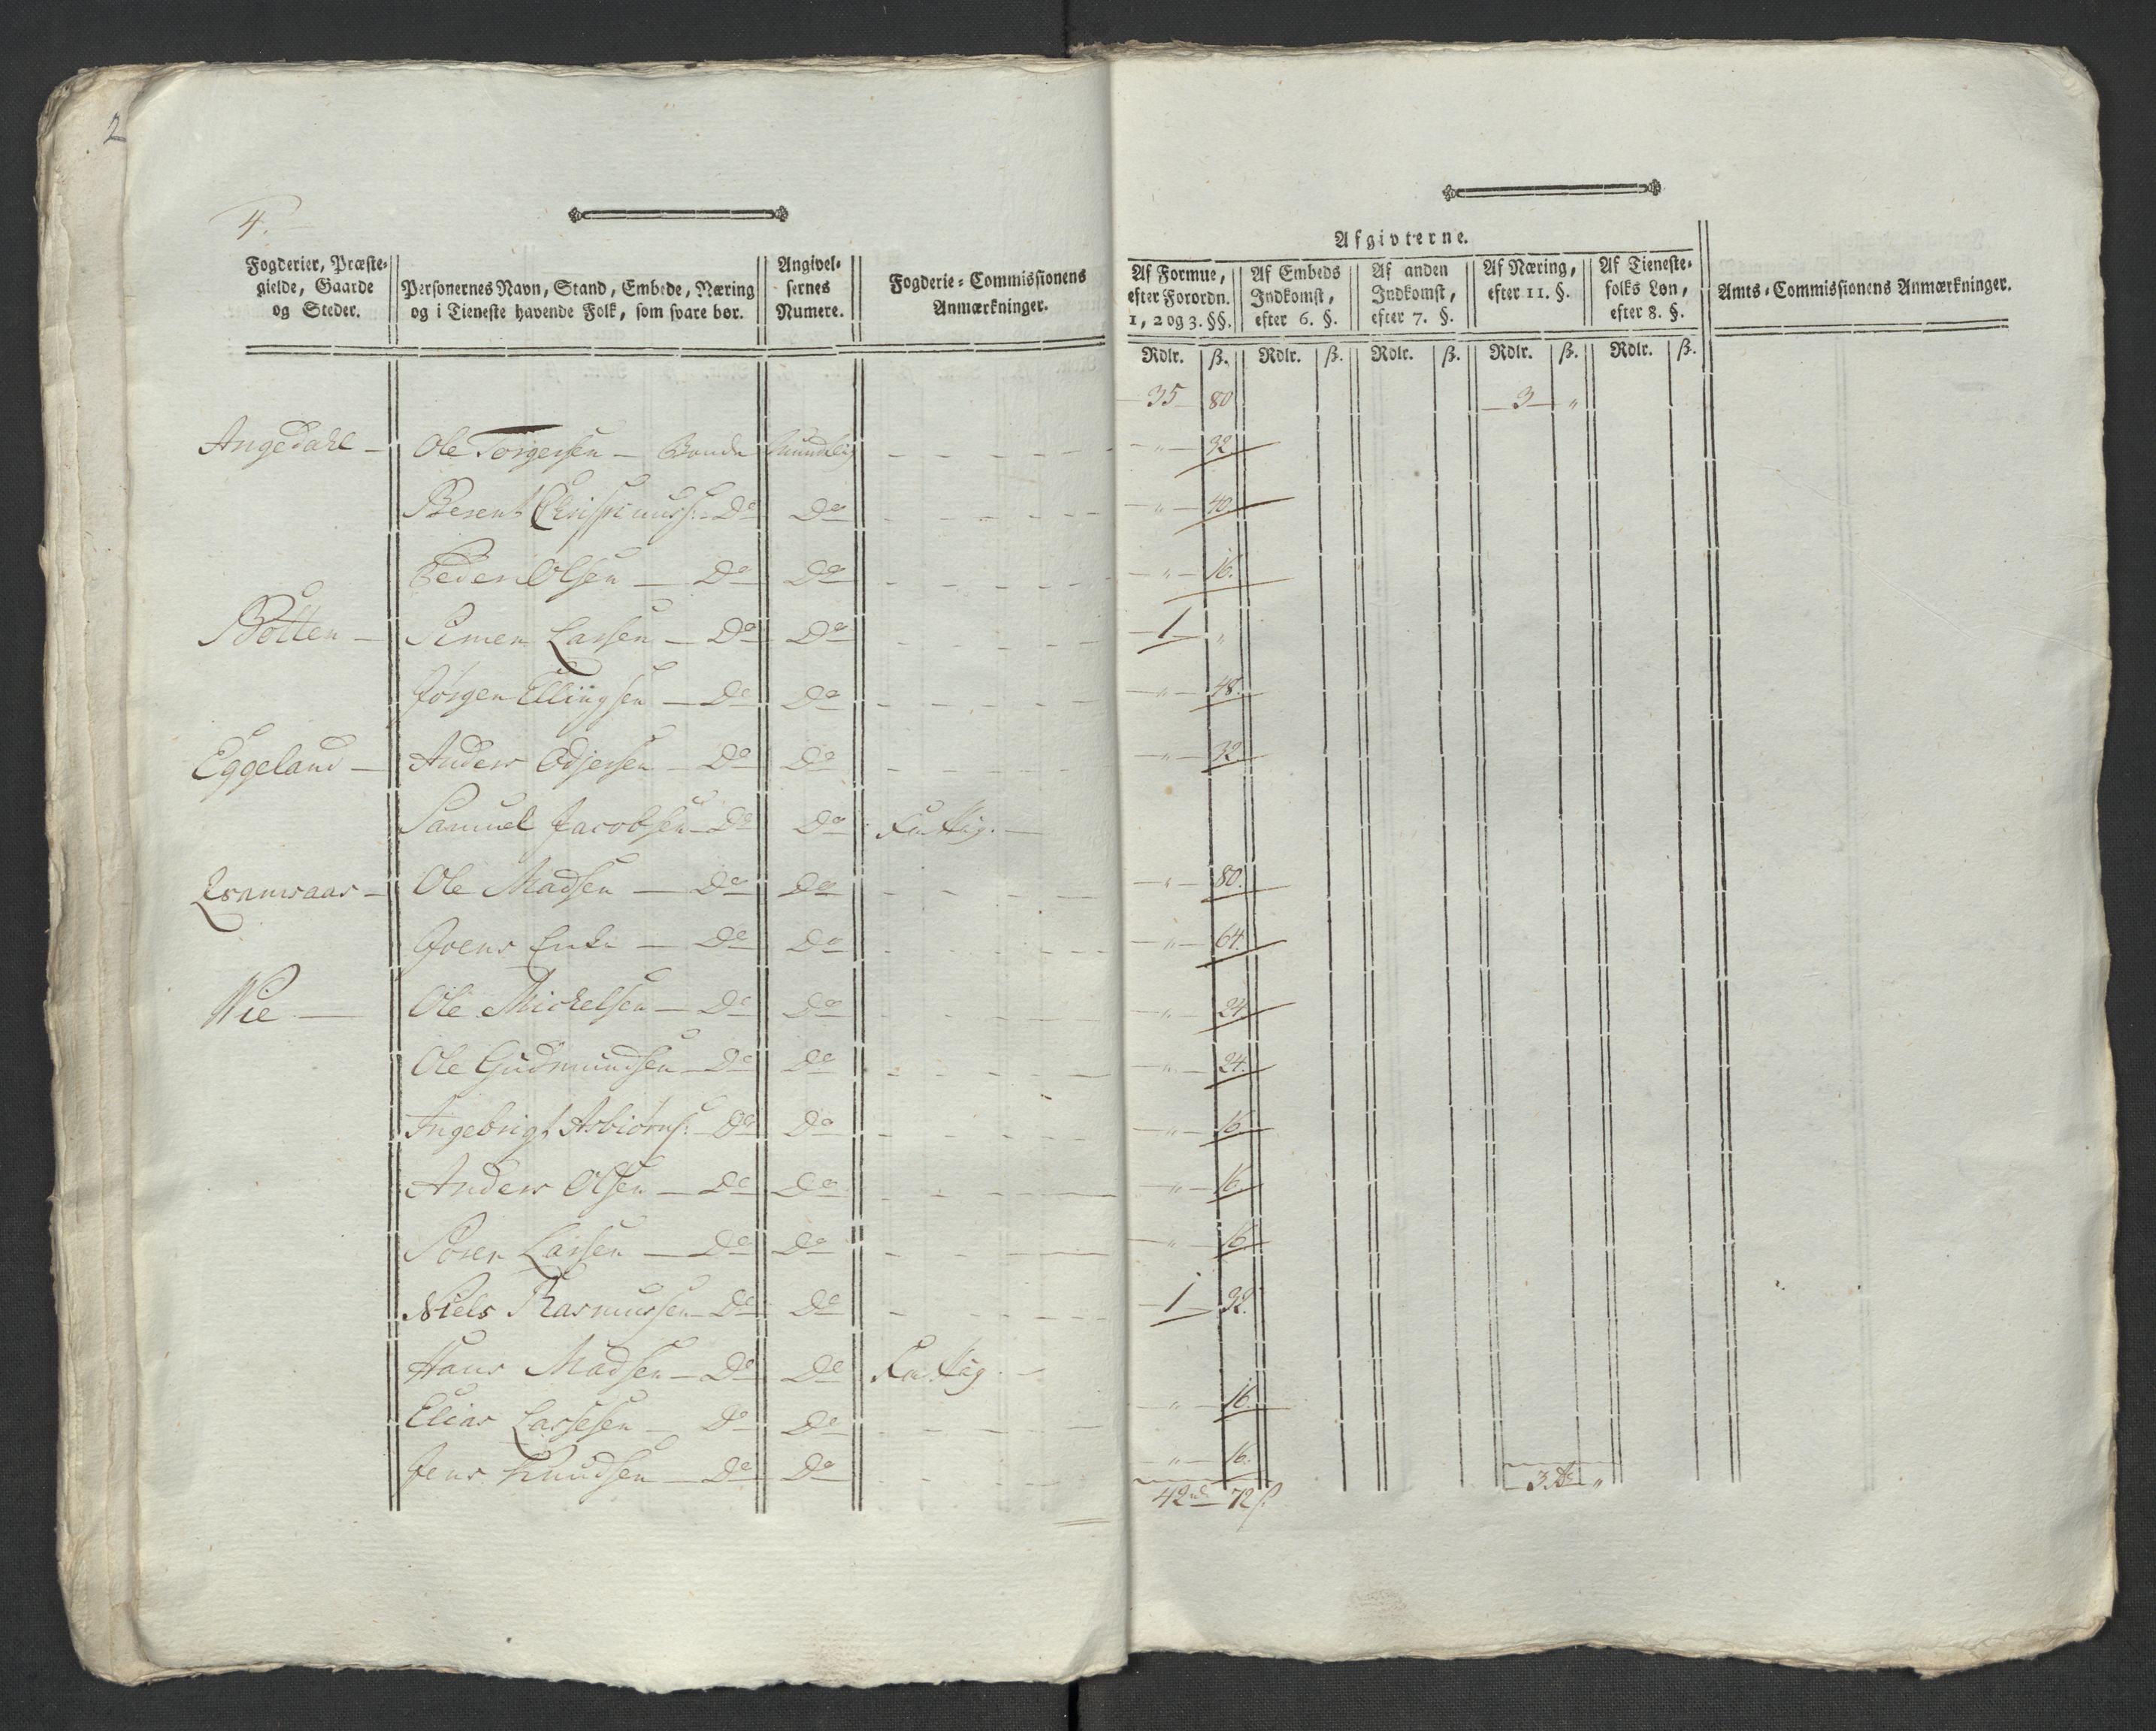 2
4.
Fogderier, Præste-
gielde, Gaarde
og Steder.
Personernes Navn, Stand, Embede, Næring
og i Tieneste havende Folk, som svare bør.
Angivel-
sernes
Numere.
Fogderie-Commissionens
Anmærkninger.
Afgivterne.
Af Formue,
efter Forordn.
1, 2 og 3. §§.
Af Embeds
Indkomst,
efter 6. §.
Af anden
Indkomst,
efter 7. §.
Af Næring,
efter 11. §.
Af Tieneste-
folks Løn,
efter 8. §.
Amts-Commissionens Anmærkninger.
Rdlr. ß. Rdlr. ß. Rdlr. ß. Rdlr. ß. Rdlr. ß.
35 80 3 "
Angedahl — Ole Torgersen — Bonde Mundtlig " 92
Berent Do Do " 40.
Peder Olsen — Do Do " 16.
Botten — Simen Larsen — Do Do 1 "
Jörgen Ellingsen — Do Do " 48.
Eggeland — Anders Odjersen — Do Do " 32
Samuel Jacobsen — Do Do Fattig. —
Ole Madsen — Do Do " 80.
Joens Enke — Do Do " 64.
Wie — Ole Michelsen — Do Do " 24.
Ole Gudmundsen — Do Do " 24.
Ingebrigt Asbiörns: Do Do " 16.
Anders Olsen — Do Do " 16.
Sören Larsen — Do Do " 16.
Niels Rasmussen — Do Do 1 32.
Hans Madsen — Do Do Fattig. —
Elias Lassesen — Do Do " 16.
Jens Knudsen — Do Do " 16.
42 rd 72 ß. 3. "